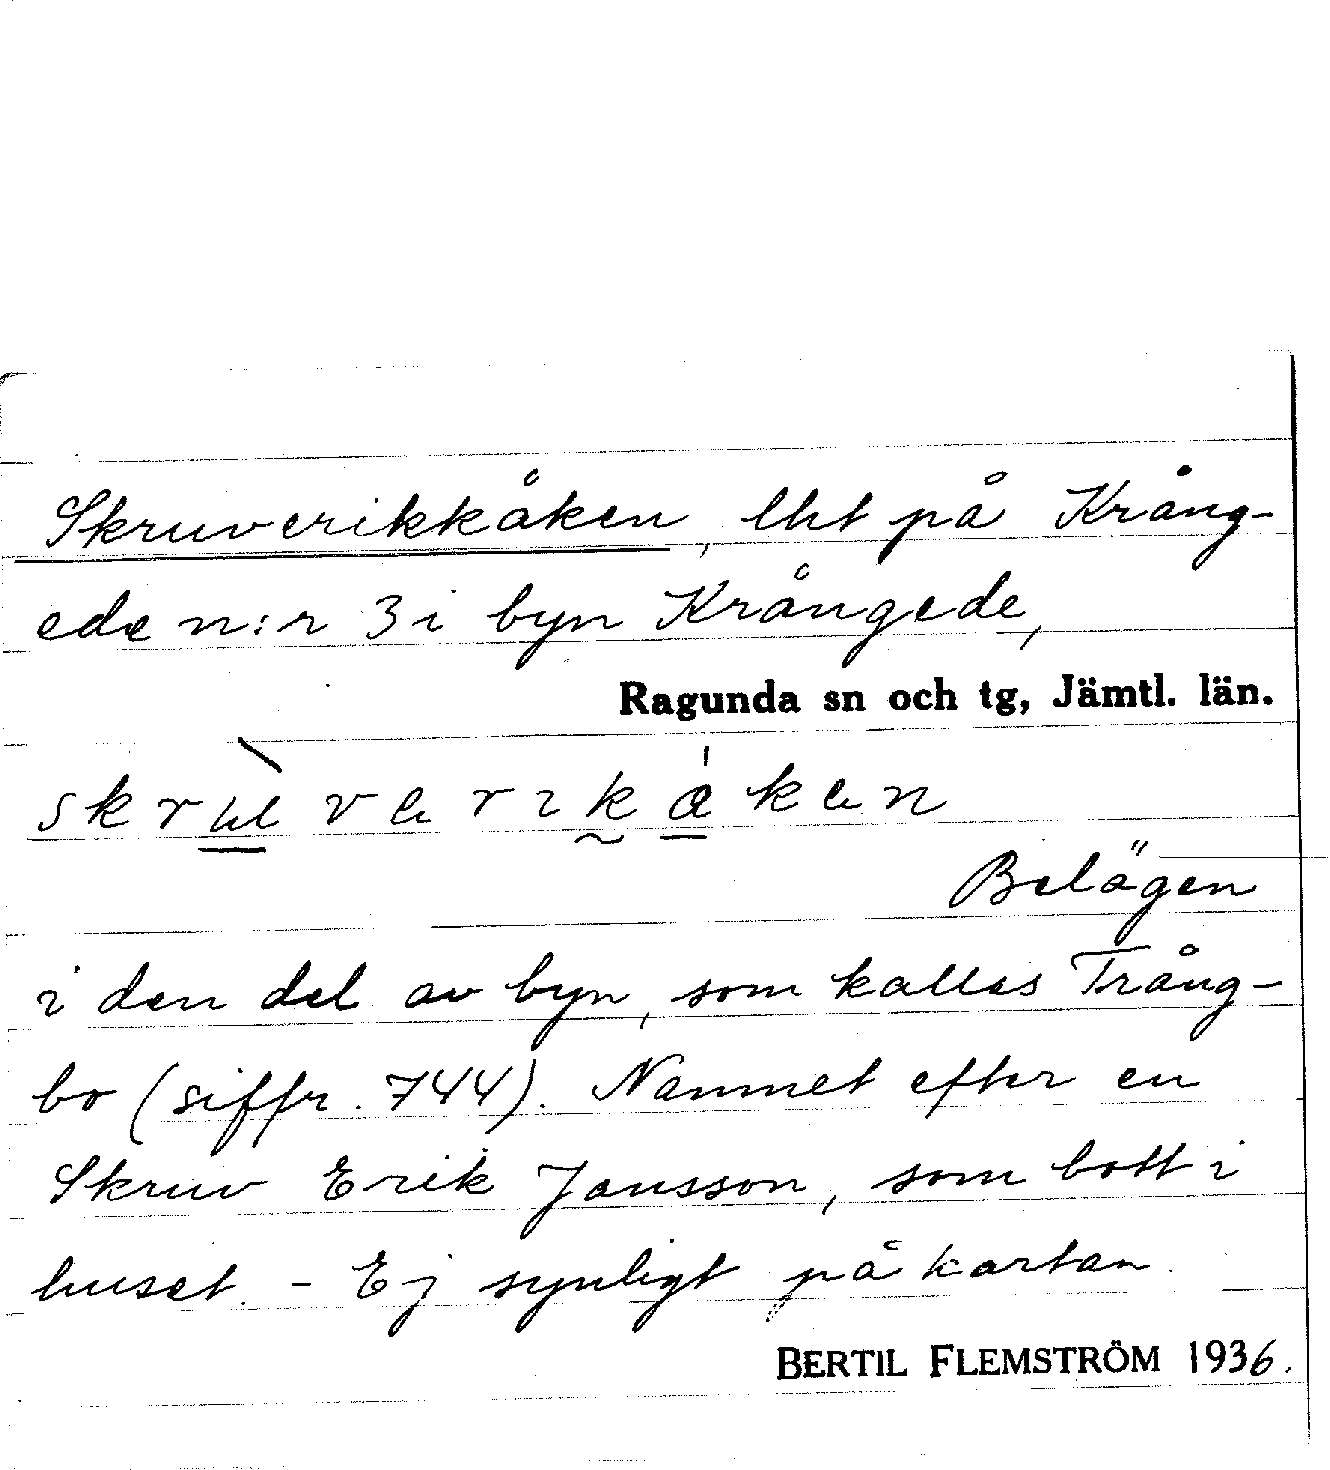 Skruverikkåken, lht på Krång-
ede n:r 3 i byn Krångede,
Ragunda sn och tg, Jämtl. län.
Belägen
i den del av byn, som kallas Trång-
bo (siffr. 744). Namnet efter en
Skruv Erik Jansson, som bott i
huset. - Ej synligt på kartan.
BERTIL FLEMSTRÖM 1936.